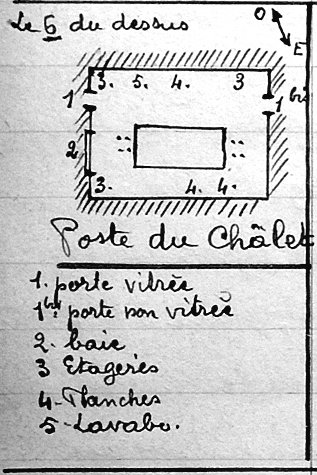 Le 6 du dessus
O
E
3. 5. 4. 3
1 1 bis
2
3. 4. 4.
Poste du Châlet
1. porte vitrée
1 bis porte non vitrée
2. baie
3 Etagères
4. Planches
5. Lavabo.